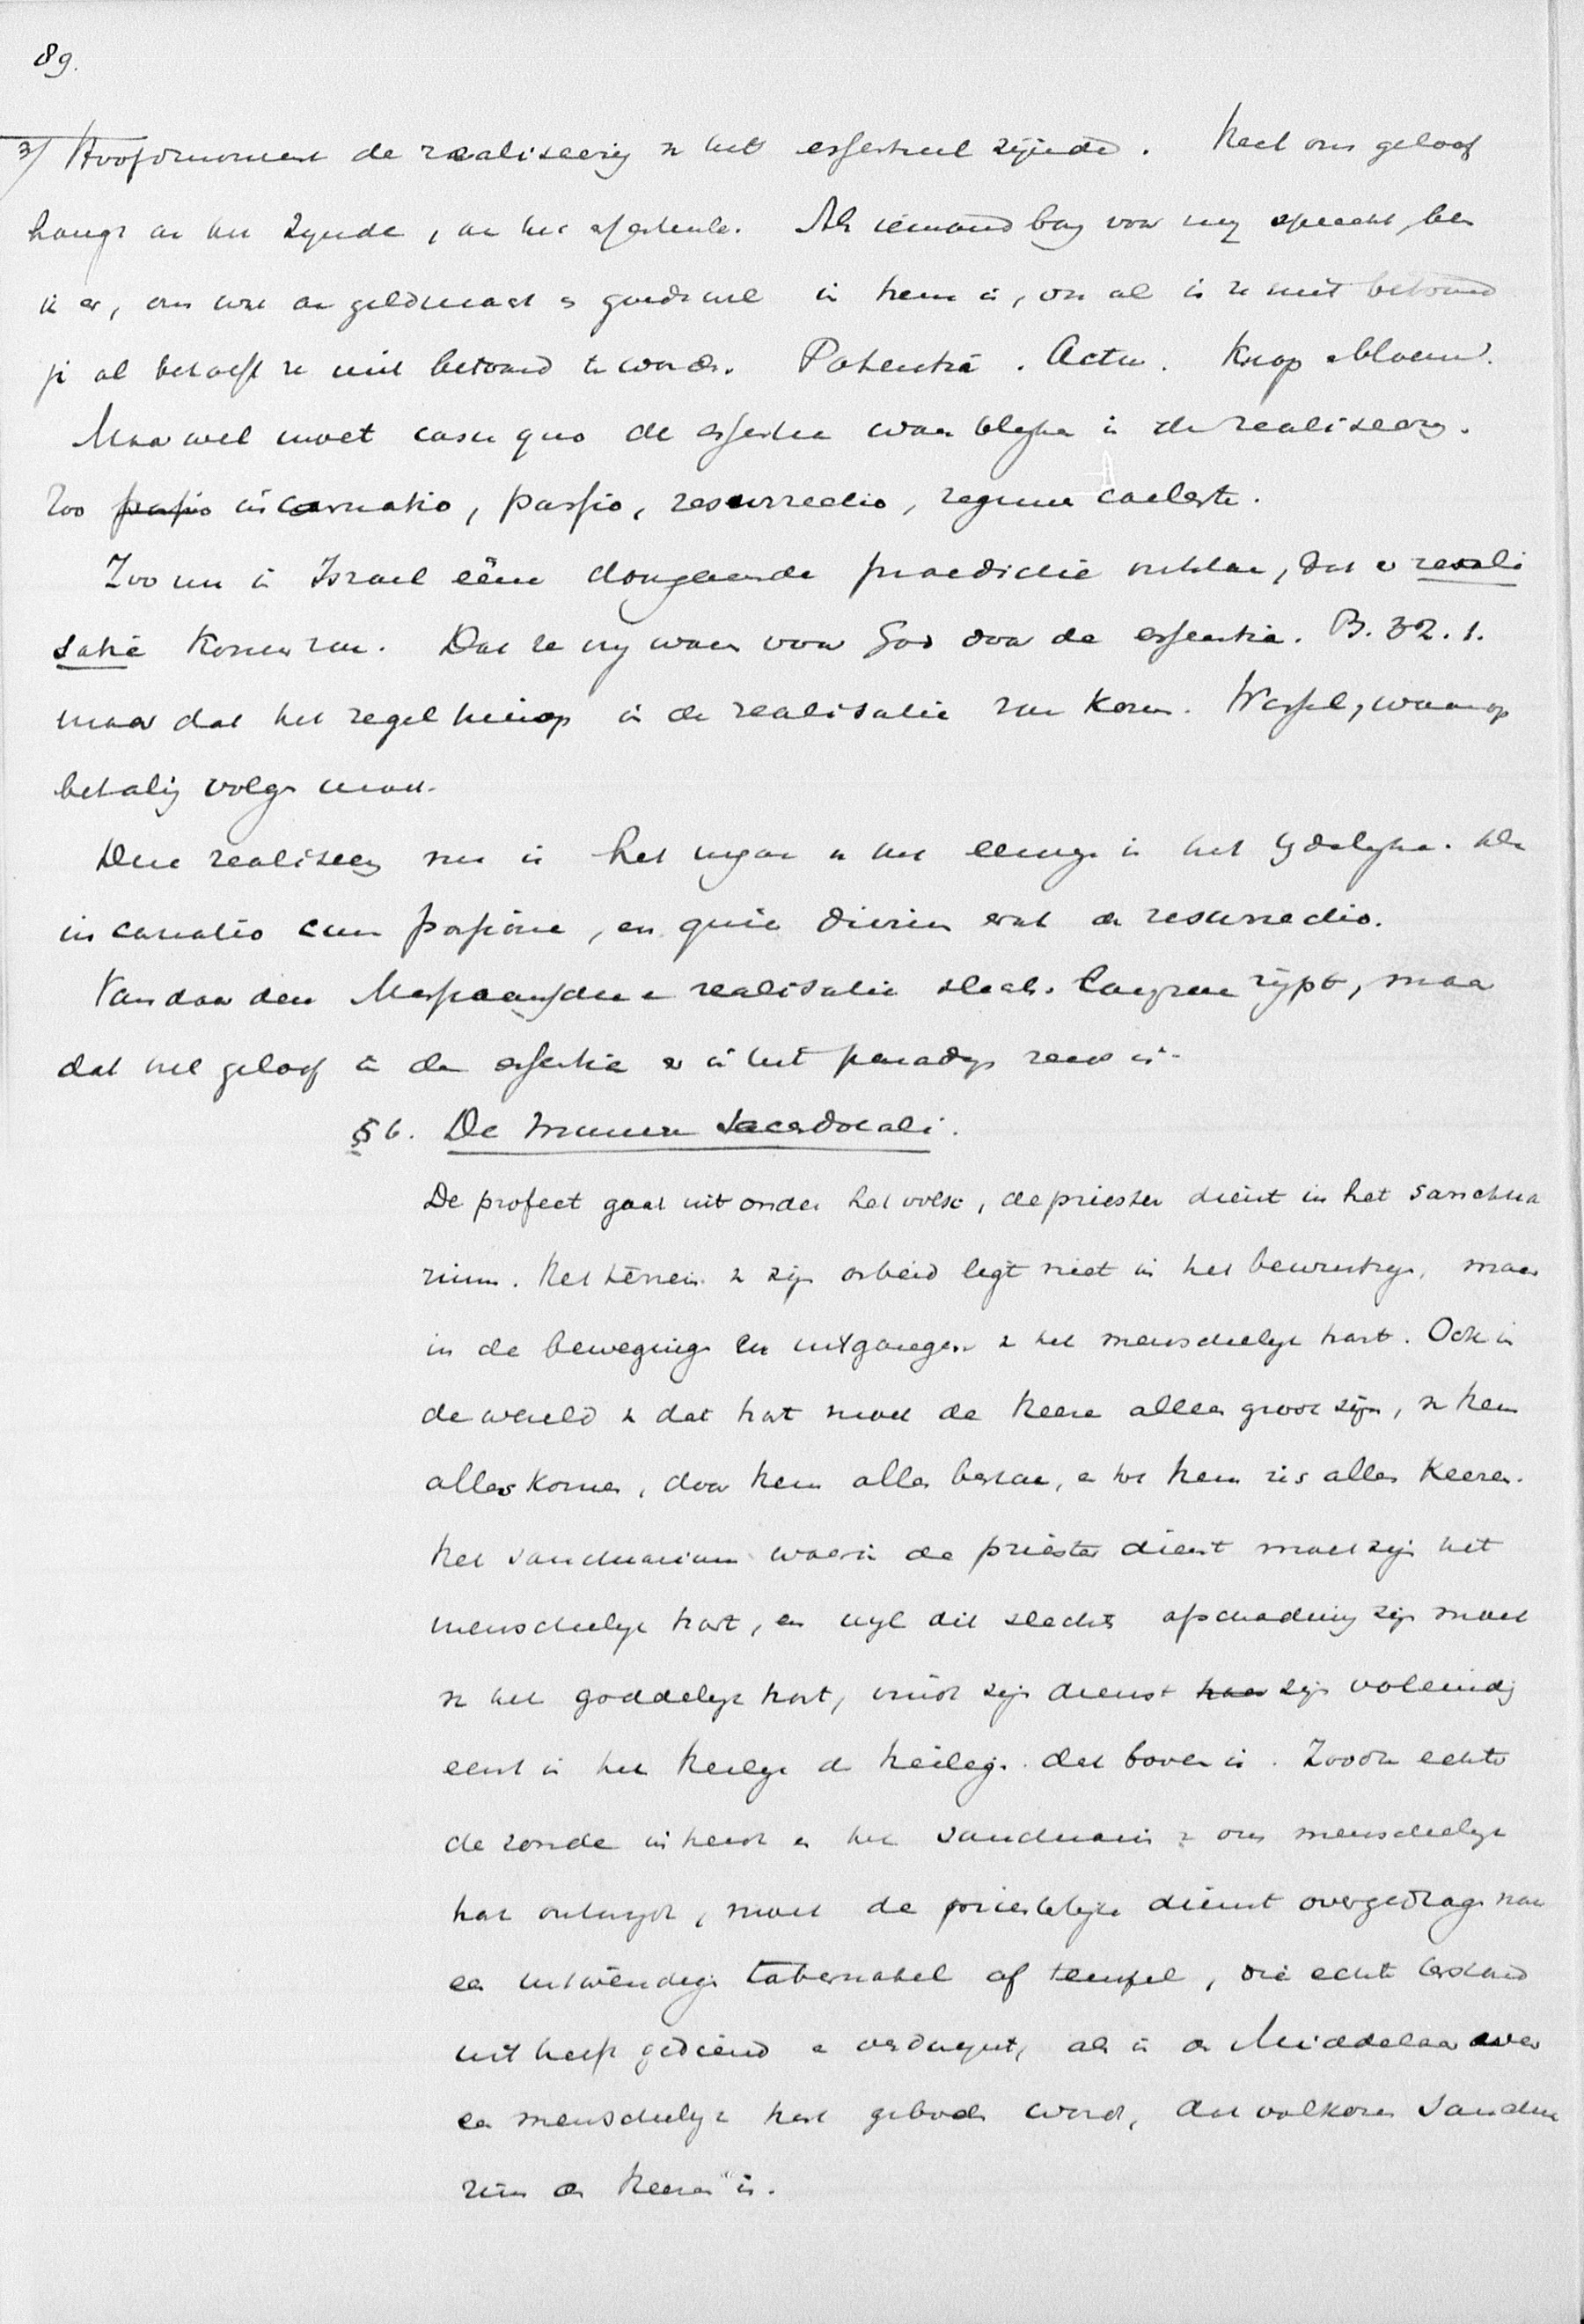 89.
3/ Hoofdmoment de realiseering v het essentieel zijnde. Heel ons geloof
hangt an het zijnde, an het essentieele. Als iemand borg voor mij spreekt, ben
ik er, om wat an geldmacht & goede wil in hem is, ook al is ze niet betoond
ja al behoeft ze niet betoond te worden. Potentia. Actu. Knop bloem.
Maar wel moet casu quo de essentia waar blijken in de realiseering.
Zoo incarnatio, passio, resurrectio, regnum caeleste.
Zoo nu in Israel eene doorgaande praedictie ontstaan, dat er reali
satie komen zou. Dat ze vrij waren voor God door de essentia. Ps. 32.1.
maar dat het zegel hierop in de realisatie zou komen. Wissel, waarop
betaling volgen moet.
Deze realiseering nu is het ingaan v het eeuwige in het tijdelijke. Als
incarnatio cum passione, en quia divin erat de resurrectio.
Vandaar den Messiaanschen realisatie slechts langzaam rijpt, maar
dat het geloof in de essentia er in het paradijs reeds is.
§ 6. De munere Sacerdotali.
De profeet gaat uit onder het volk, de priester dient in het sanctua
rium. Het terrein v zijn arbeid legt niet in het bewustzijn, maar
in de bewegingen en uitgangen v het menschelijk hart. Ook in
de wereld v dat hart moet de Heere alleen groot zijn, v hem
alles komen, door hem alles bestaan, en tot hem zich alles keeren.
Het sanctuarium waarin de priester dient moet zijn het
menschelijk hart, en wijl dit slechts afschaduwing zijn moet
v het goddelijk hart, vindt zijn dienst zijn voleinding
eerst in het Heilige der heiligen dat boven is. Zoodra echter
de zonde intreedt en het sanctuarium v ons menschelijk
hart ontwijdt, moet de priesterlijke dienst overgedragen naar
een uitwendigen tabernakel of tempel, die echter bestand
uit heeft gediend en verdwijnt, als in de Middelaar weer
een menschelijk hart geboden wordt, dat volkomen Sanctua
rium des Heeren is.